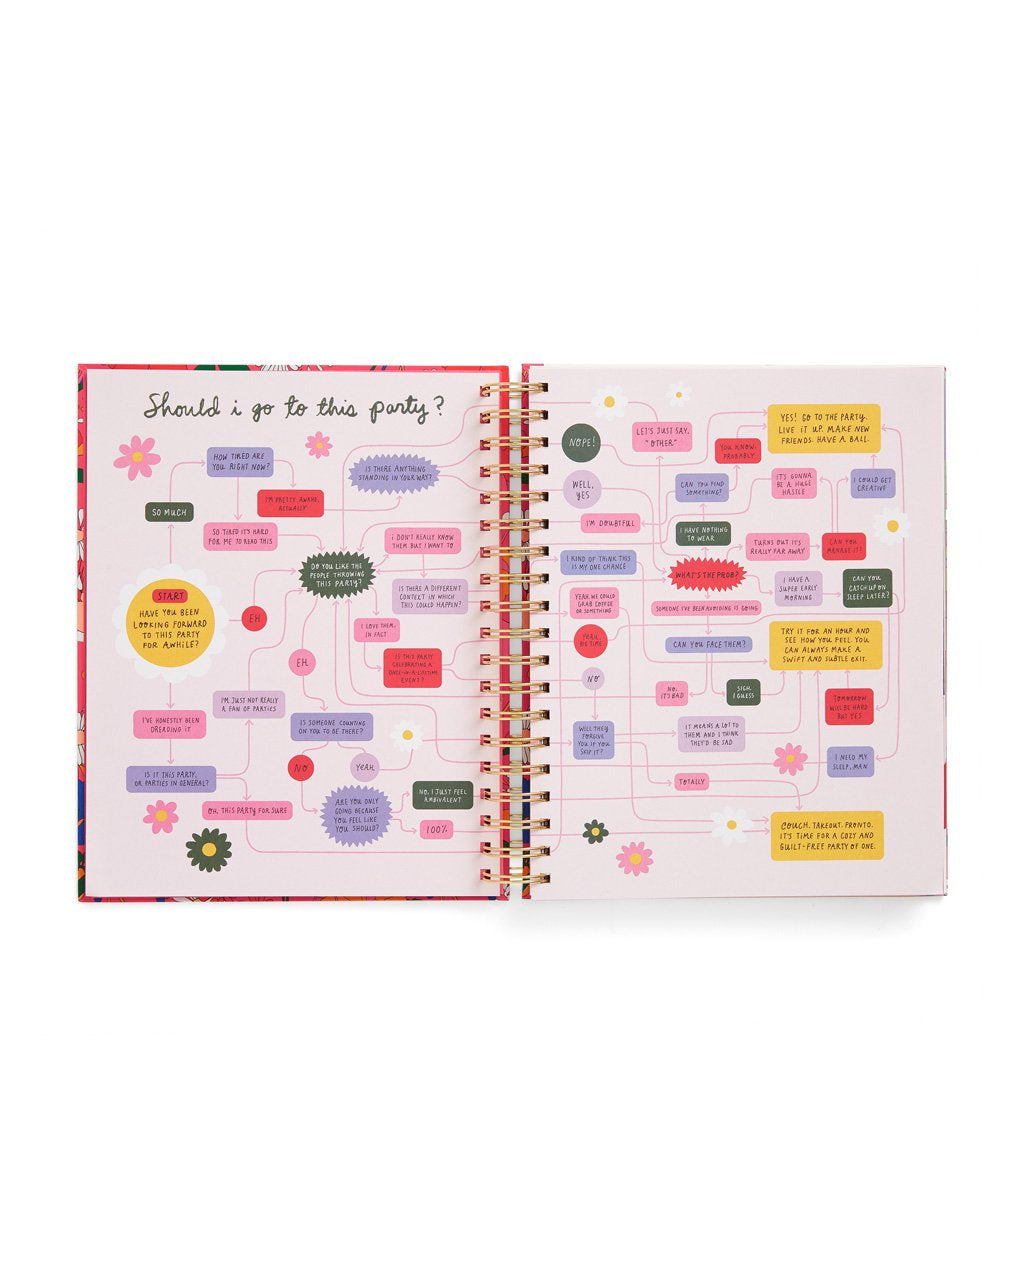 Should i go to this party?
HOW TIRED ARE
YOU RIGHT NOW?
IS THERE ANYTHING
STANDING IN YOUR WAY?
I'M PRETTY AWAKE,
ACTUALLY
SO MUCH
SO TIRED IT'S HARD
FOR ME TO READ THIS
i DON'T REALLY KNOW
THEM BUT I WANT TO
DO YOU LIKE THE
PEOPLE THROWING
THIS PARTY?
IS THERE A DIFFERENT
CONTEXT IN WHICH
THIS COULD HAPPEN?
START
HAVE YOU BEEN
LOOKING FORWARD
TO THIS PARTY
FOR AWHILE?
EH
I LOVE THEM,
IN FACT
EH.
IS THIS PARTY
CELEBRATING A
ONCE-IN-A-LIFETIME
EVENT?
I'M JUST NOT REALLY
A FAN OF PARTIES
I'VE HONESTLY BEEN
DREADING IT
IS SOMEONE COUNTING
ON YOU TO BE THERE?
NO
YEAH.
IS IT THIS PARTY,
OR PARTIES IN GENERAL?
OH, THIS PARTY FOR SURE
ARE YOU ONLY
GOING BECAUSE
YOU FEEL LIKE
YOU SHOULD?
NO, I JUST FEEL
AMBIVALENT
100%
NOPE!
LET'S JUST SAY,
"OTHER."
YOU KNOW,
PROBABLY
YES! GO TO THE PARTY.
LIVE IT UP. MAKE NEW
FRIENDS. HAVE A BALL.
WELL,
YES
CAN YOU FIND
SOMETHING?
IT'S GONNA
BE A HUGE
HASSLE
I COULD GET
CREATIVE
I'M DOUBTFUL
I HAVE NOTHING
TO WEAR
TURNS OUT IT'S
REALLY FAR AWAY
CAN YOU
MANAGE IT?
I KIND OF THINK THIS
IS MY ONE CHANCE
WHAT'S THE PROB?
I HAVE A
SUPER EARLY
MORNING
CAN YOU
CATCH UP ON
SLEEP LATER?
YEAH, WE COULD
GRAB COFFEE
OR SOMETHING
SOMEONE I'VE BEEN AVOIDING IS GOING
YEAH,
BIG TIME
CAN YOU FACE THEM?
TRY IT FOR AN HOUR AND
SEE HOW YOU FEEL. YOU
CAN ALWAYS MAKE A
SWIFT AND SUBTLE EXIT.
NO
NO,
IT'S BAD
SIGH.
I GUESS
TOMORROW
WILL BE HARD
BUT YES
WILL THEY
FORGIVE
YOU IF YOU
SKIP IT?
IT MEANS A LOT TO
THEM AND I THINK
THEY'D BE SAD
I NEED MY
SLEEP, MAN
TOTALLY
COUCH. TAKEOUT. PRONTO.
IT'S TIME FOR A COZY AND
GUILT-FREE PARTY OF ONE.